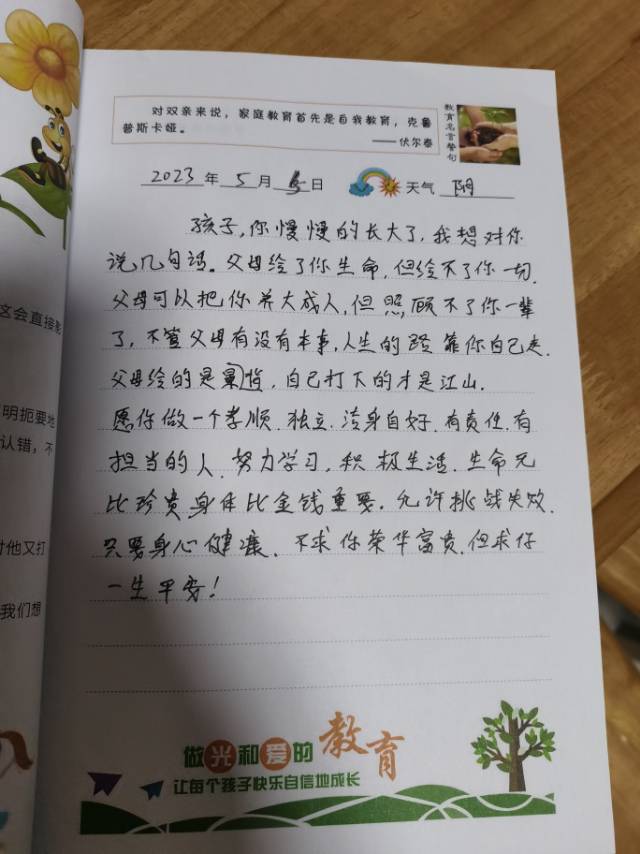 对双亲来说，家庭教育首先是自我教育，克鲁
普斯卡娅。
——伏尔泰
教育名言警句
2023年5月5日 天气 阴
孩子,你慢慢的长大了,我想对你
说几句话。父母给了你生命,但给不了你一切.
父母可以把你养大成人,但照顾不了你一辈
了,不管父母有没有本事,人生的路靠你自己走.
父母给的是背,自己打下的才是江山.
愿你做一个孝顺.独立.洁身自好.有责任.有
担当的人.努力学习,积极生活.生命无
比珍贵身体比金钱重要.允许挑战失败.
只要身心健康.不求你荣华富贵.但求你
一生平安!
这会直接影
明扼要地
认错，不
对他又打
我们想
做光和爱的教育
让每个孩子快乐自信地成长